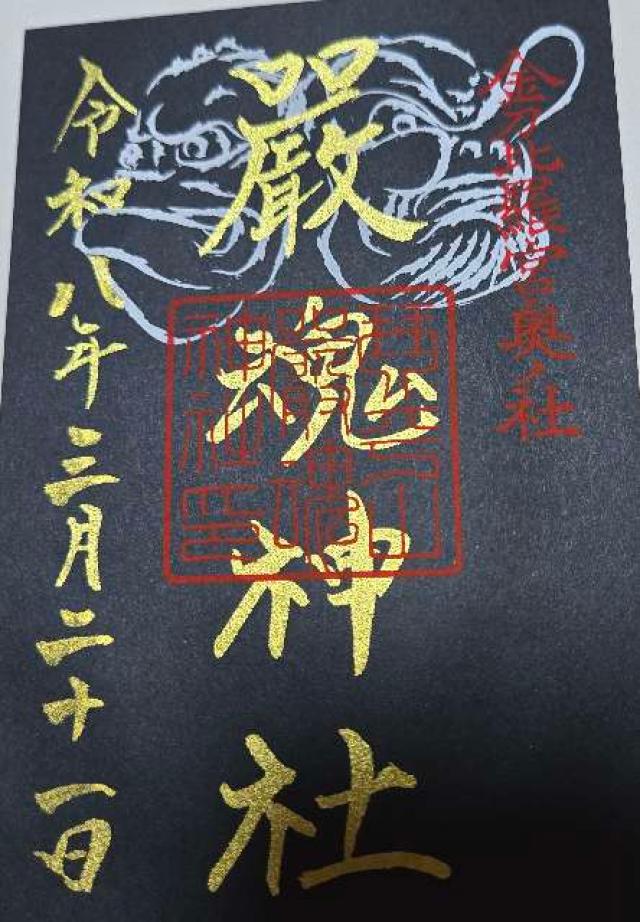 金刀比羅宮奥ノ社
嚴魂神社
令和八年三月二十一日